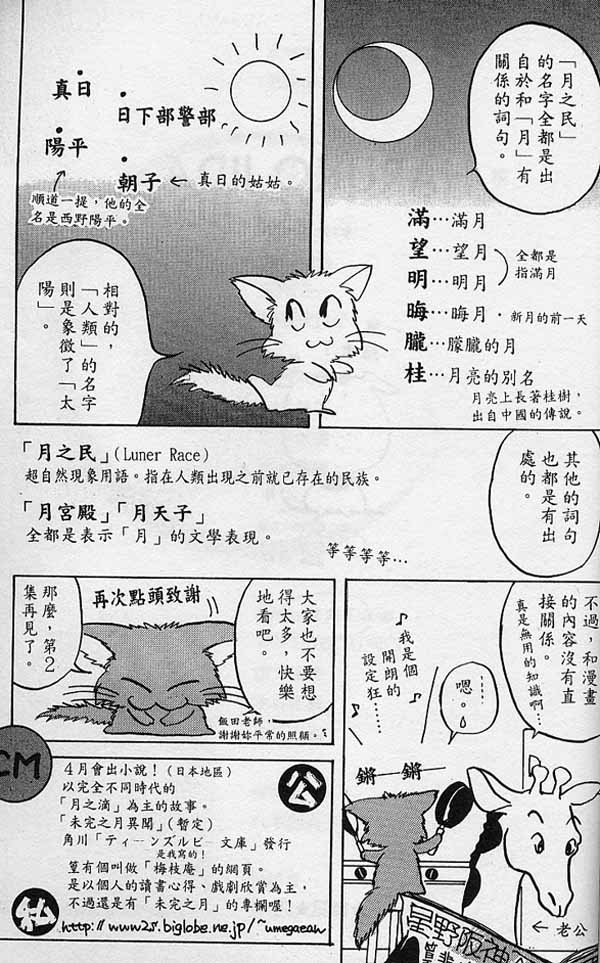 「月之民」
的名字全都是出
自於和「月」有
關係的詞句。
滿…滿月
望…望月
明…明月
全都是
指滿月
晦…晦月・新月的前一天
朧…朦朧的月
桂…月亮的別名
月亮上長著桂樹，
出自中國的傳說。
真日
日下部警部
陽平
朝子 ← 真日的姑姑。
順道一提，他的全
名是西野陽平。
相對的，
「人類」的名字
則是象徵了「太
陽」。
其他的詞句
也都是有出
處的。
「月之民」(Luner Race)
超自然現象用語。指在人類出現之前就已存在的民族。
「月宮殿」「月天子」
全都是表示「月」的文學表現。
等等等等…
不過，和漫畫
的內容沒有直
接關係。
真是無用的知識啊…
嗯。
♪我是個
開朗的
設定狂……♪
鏘— 鏘—
← 老公
星野阪神
大家也不要想
得太多，快樂
地看吧。
再次點頭致謝
那麼，第2
集再見了。
飯田老師，
謝謝妳平常的照顧。
CM
公
4月會出小說！(日本地區)
以完全不同時代的
「月之滴」為主的故事。
「未完之月異聞」(暫定)
角川「ティーンズルビー文庫」發行
是我寫的！
筻有個叫做「梅枝庵」的網頁。
是以個人的讀書心得、戲劇欣賞為主，
不過還是有「未完之月」的專欄喔！
私
http://www2s.biglobe.ne.jp/~umegaean